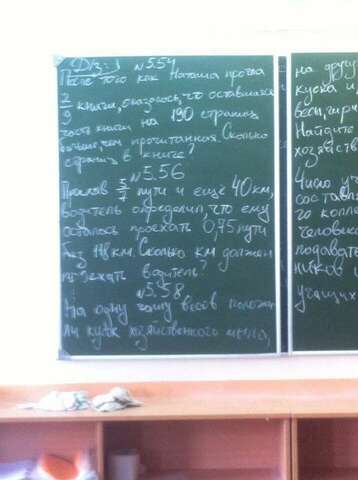 Д/з: №5.54
После того как Наташа прочла
2/9 книги, оказалось, что оставшаяся
часть книги на 190 страниц
больше, чем прочитанная. Сколько
страниц в книге?
№5.56
Проехав 5/7 пути и ещё 40 км,
водитель определил, что ему
осталось проехать 0,75 пути
без 118 км. Сколько км должен
проехать водитель?
№5.58
На одну чашу весов положи
ли кусок хозяйственного мыла,
на друг
куска и
весы, гири
Найдите
хозяйств
Число уч
составля
го колле
человек
подават
ников
учащих